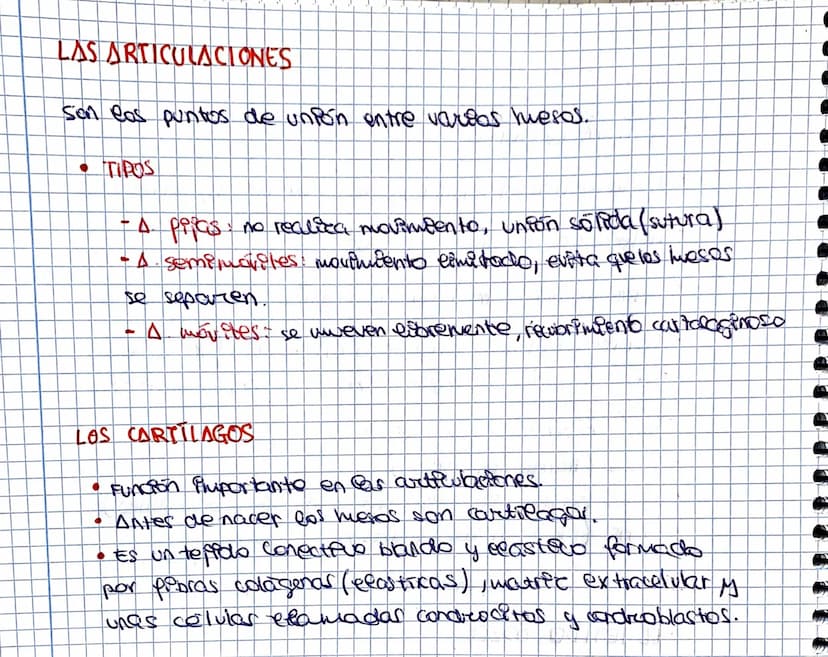 LAS ARTICULACIONES
Son los puntos de unión entre varios huesos.
• TIPOS
- A. fijas: no realiza movimiento, unión sólida (sutura)
- A. semimóviles: movimiento limitado, evita que los huesos
se separen.
- A. móviles: se mueven libremente, recubrimiento cartilaginoso
LOS CARTÍLAGOS
• Función importante en las articulaciones.
• Antes de nacer los huesos son cartílagos.
• Es un tejido conectivo blando y elástico formado
por fibras colágenas (elásticas), matriz extracelular y
unas células llamadas condrocitos y condroblastos.